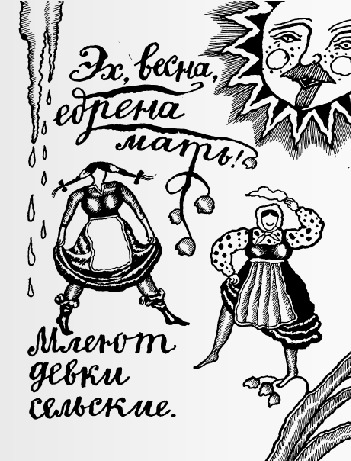 Эх, весна,
едрена
мать!
Млеют
девки
сельские.